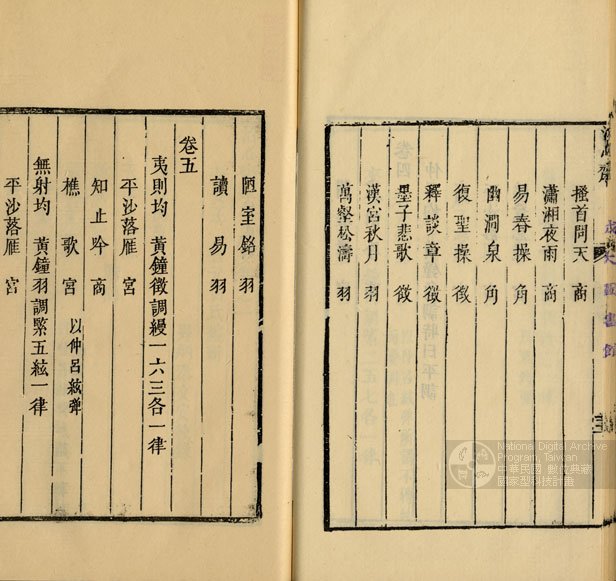 搔首問天 商
瀟湘夜雨 商
易春操 角
幽澗泉 角
復聖操 徵
釋談章 徵
墨子悲歌 徵
漢宮秋月 羽
萬壑松濤 羽
陋室銘 羽
讀易 羽
卷五
夷則均 黃鐘徵調縵一六三各一律
平沙落雁 宮
知止吟 商
樵歌 宮 以仲呂絃彈
無射均 黃鐘羽調緊五絃一律
平沙落雁 宮
National Digital Archive
Program, Taiwan
中華民國 數位典藏
國家型科技計畫